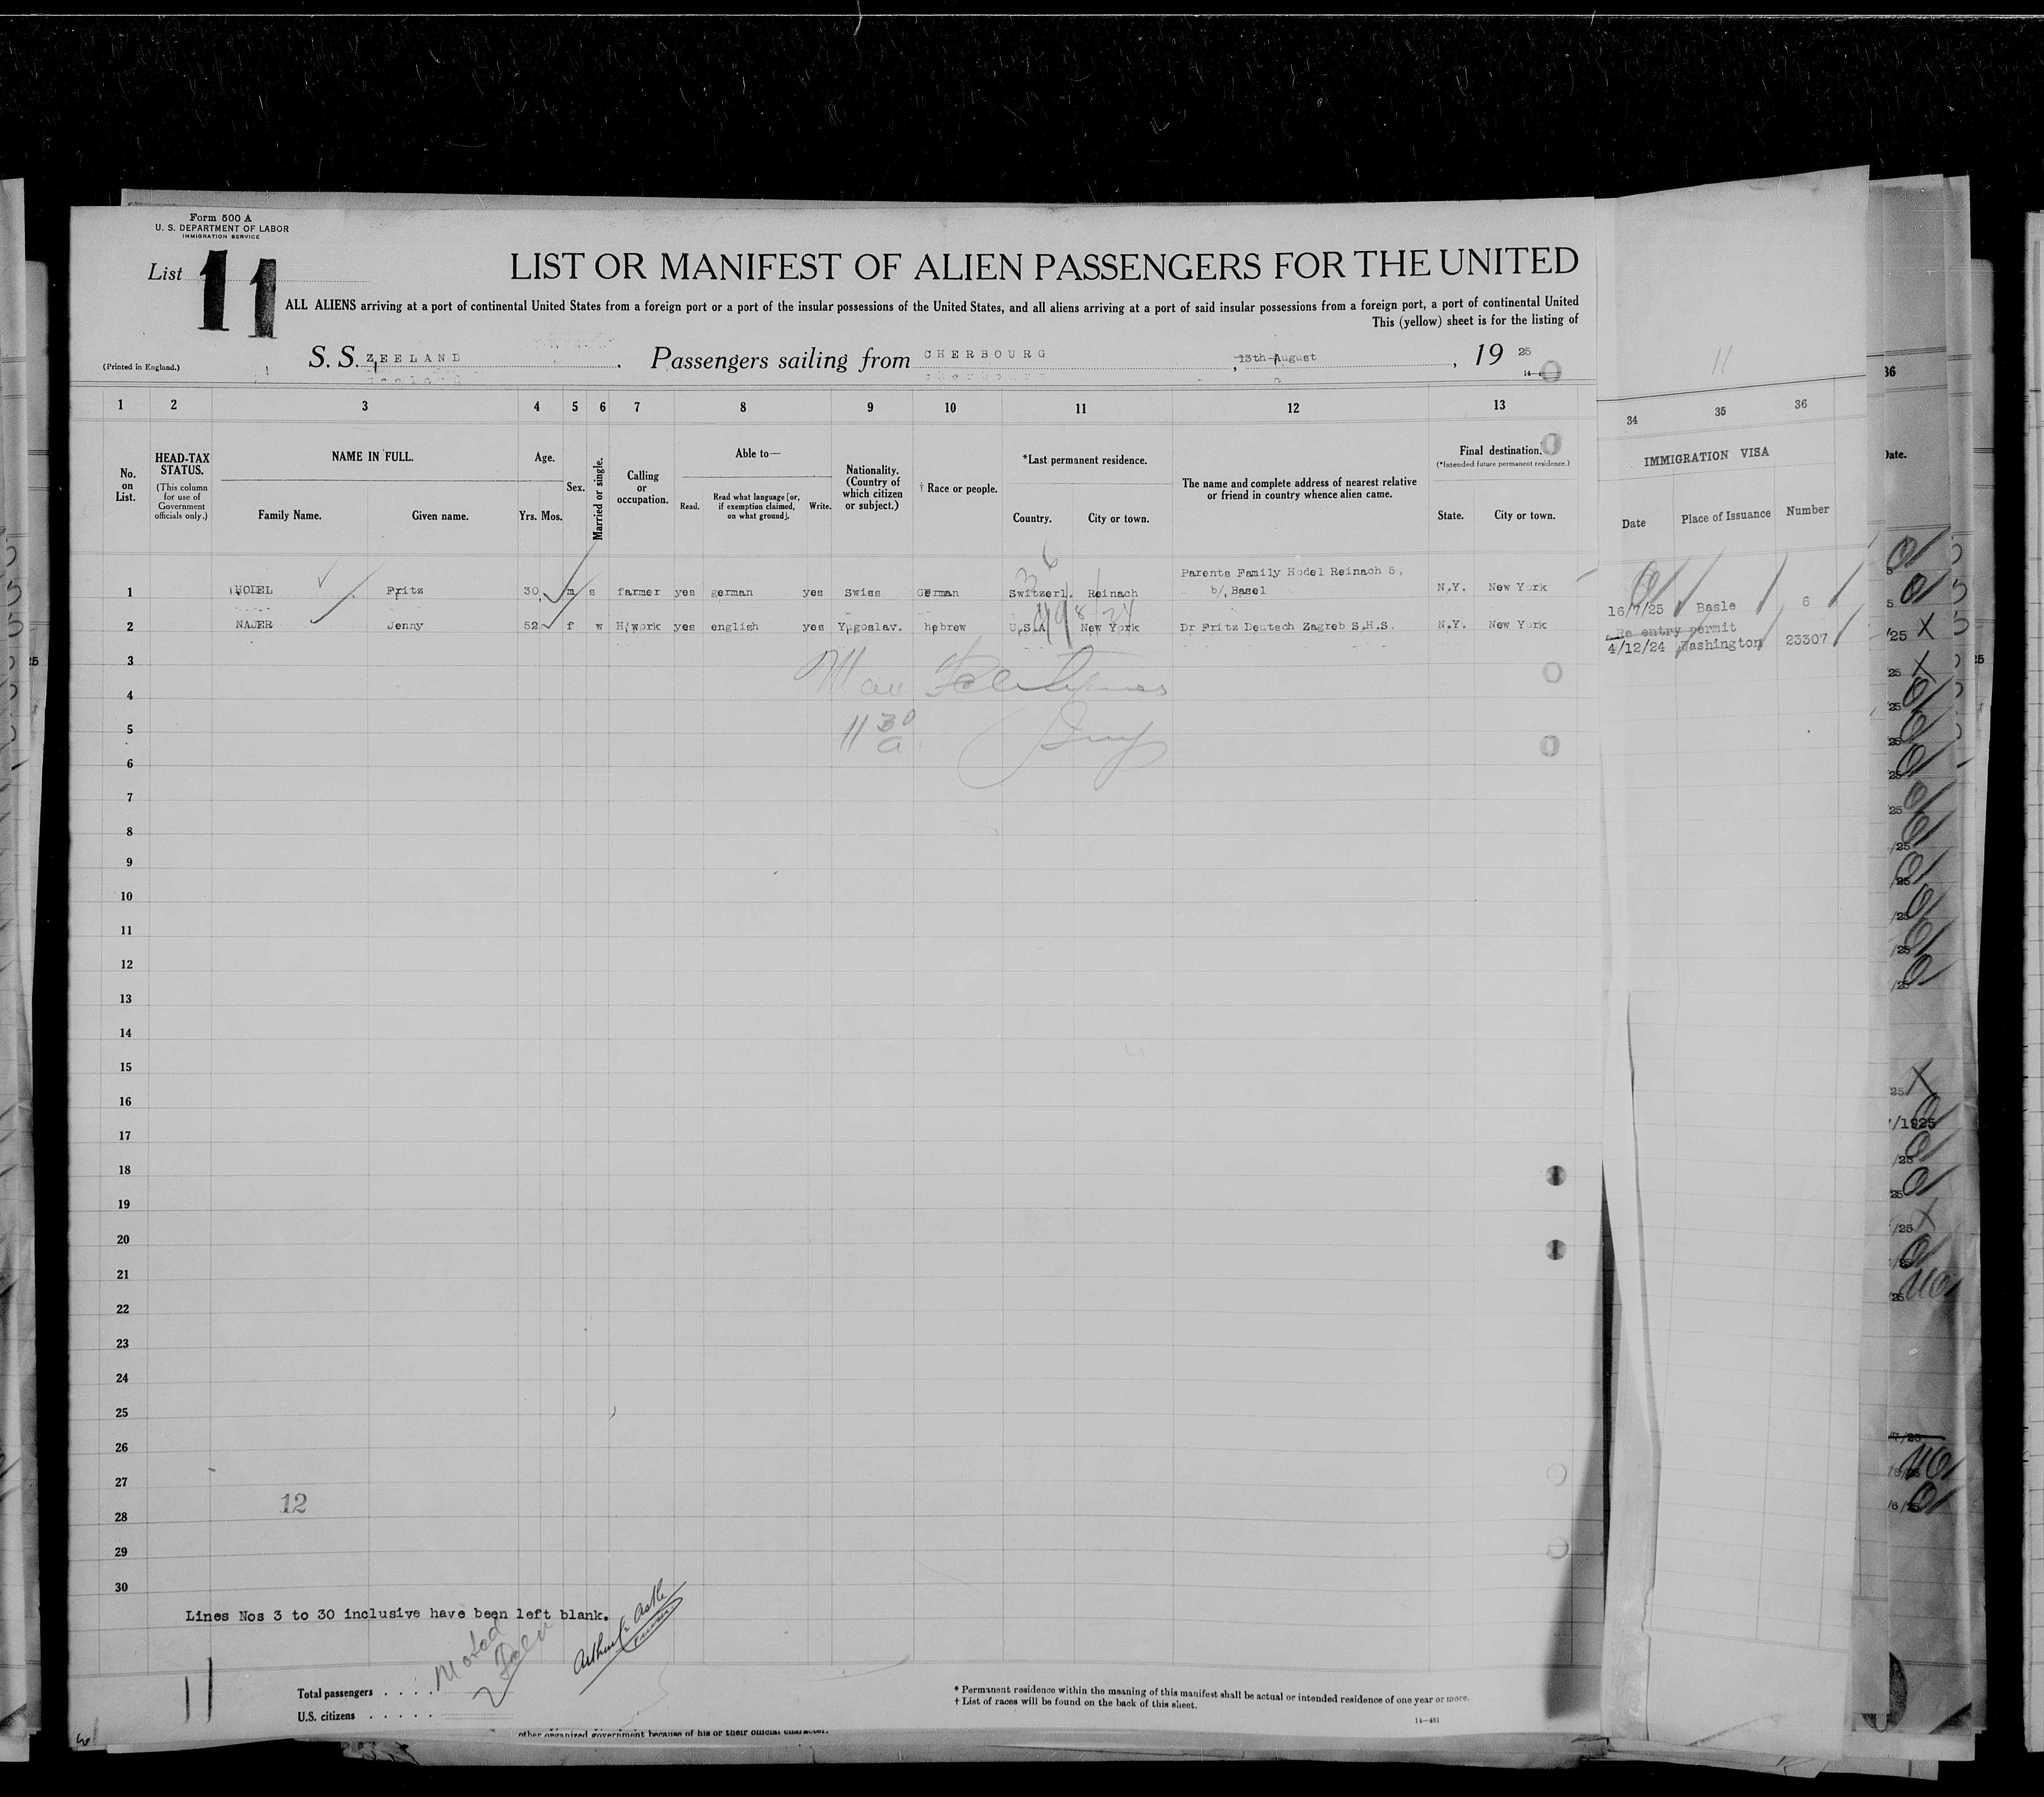 Form 500 A
U. S. DEPARTMENT OF LABOR
IMMIGRATION SERVICE
List 11
LIST OR MANIFEST OF ALIEN PASSENGERS FOR THE UNITED
ALL ALIENS arriving at a port of continental United States from a foreign port or a port of the insular possessions of the United States, and all aliens arriving at a port of said insular possessions from a foreign port, a port of continental United
This (yellow) sheet is for the listing of
(Printed in England.)
S. S. ZEELAND. Passengers sailing from CHERBOURG, 13th August, 19 25
11
1 2 3 4 5 6 7 8 9 10 11 12 13
34 35 36
No. on List.
HEAD-TAX STATUS.
(This column for use of Government officials only.)
NAME IN FULL.
Family Name. Given name.
Age.
Yrs. Mos.
Sex.
Married or single.
Calling or occupation.
Able to—
Read. Read what language [or, if exemption claimed, on what ground]. Write.
Nationality. (Country of which citizen or subject.)
† Race or people.
*Last permanent residence.
Country. City or town.
The name and complete address of nearest relative or friend in country whence alien came.
Final destination.
(*Intended future permanent residence.)
State. City or town.
IMMIGRATION VISA
Date Place of Issuance Number
36
Date.
1 HODEL Fritz 30 m s farmer yes german yes Swiss German Switzerl. Reinach Parents Family Hodel Reinach 5, b/, Basel N.Y. New York 16/7/25 Basle 6
2 NAJER Jenny 52 f w H/work yes english yes Yugoslav. hebrew U.S.A. New York Dr Fritz Deutsch Zagreb S.H.S. N.Y. New York
Re entry permit
4/12/24 Washington 23307
3
4
5
11 30 a
6
7
8
9
10
11
12
13
14
15
16
17
18
19
20
21
22
23
24
25
26
27
12
28
29
30
Lines Nos 3 to 30 inclusive have been left blank.
11
Total passengers . . . .
U.S. citizens . . . . .
* Permanent residence within the meaning of this manifest shall be actual or intended residence of one year or more.
† List of races will be found on the back of this sheet.
14—481
other organized government because of his or their official character.